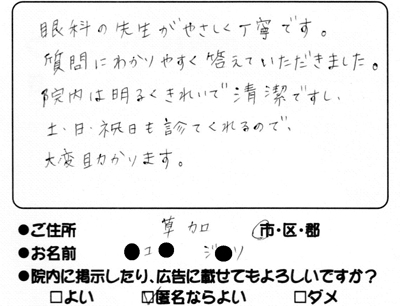 眼科の先生がやさしく丁寧です。
質問にわかりやすく答えていただきました。
院内は明るくきれいで清潔ですし、
土・日・祝日も診てくれるので、
大変助かります。
●ご住所 草加 市・区・郡
●お名前 ●コ● ジ●ソ
●院内に掲示したり、広告に載せてもよろしいですか?
□よい ☑匿名ならよい □ダメ